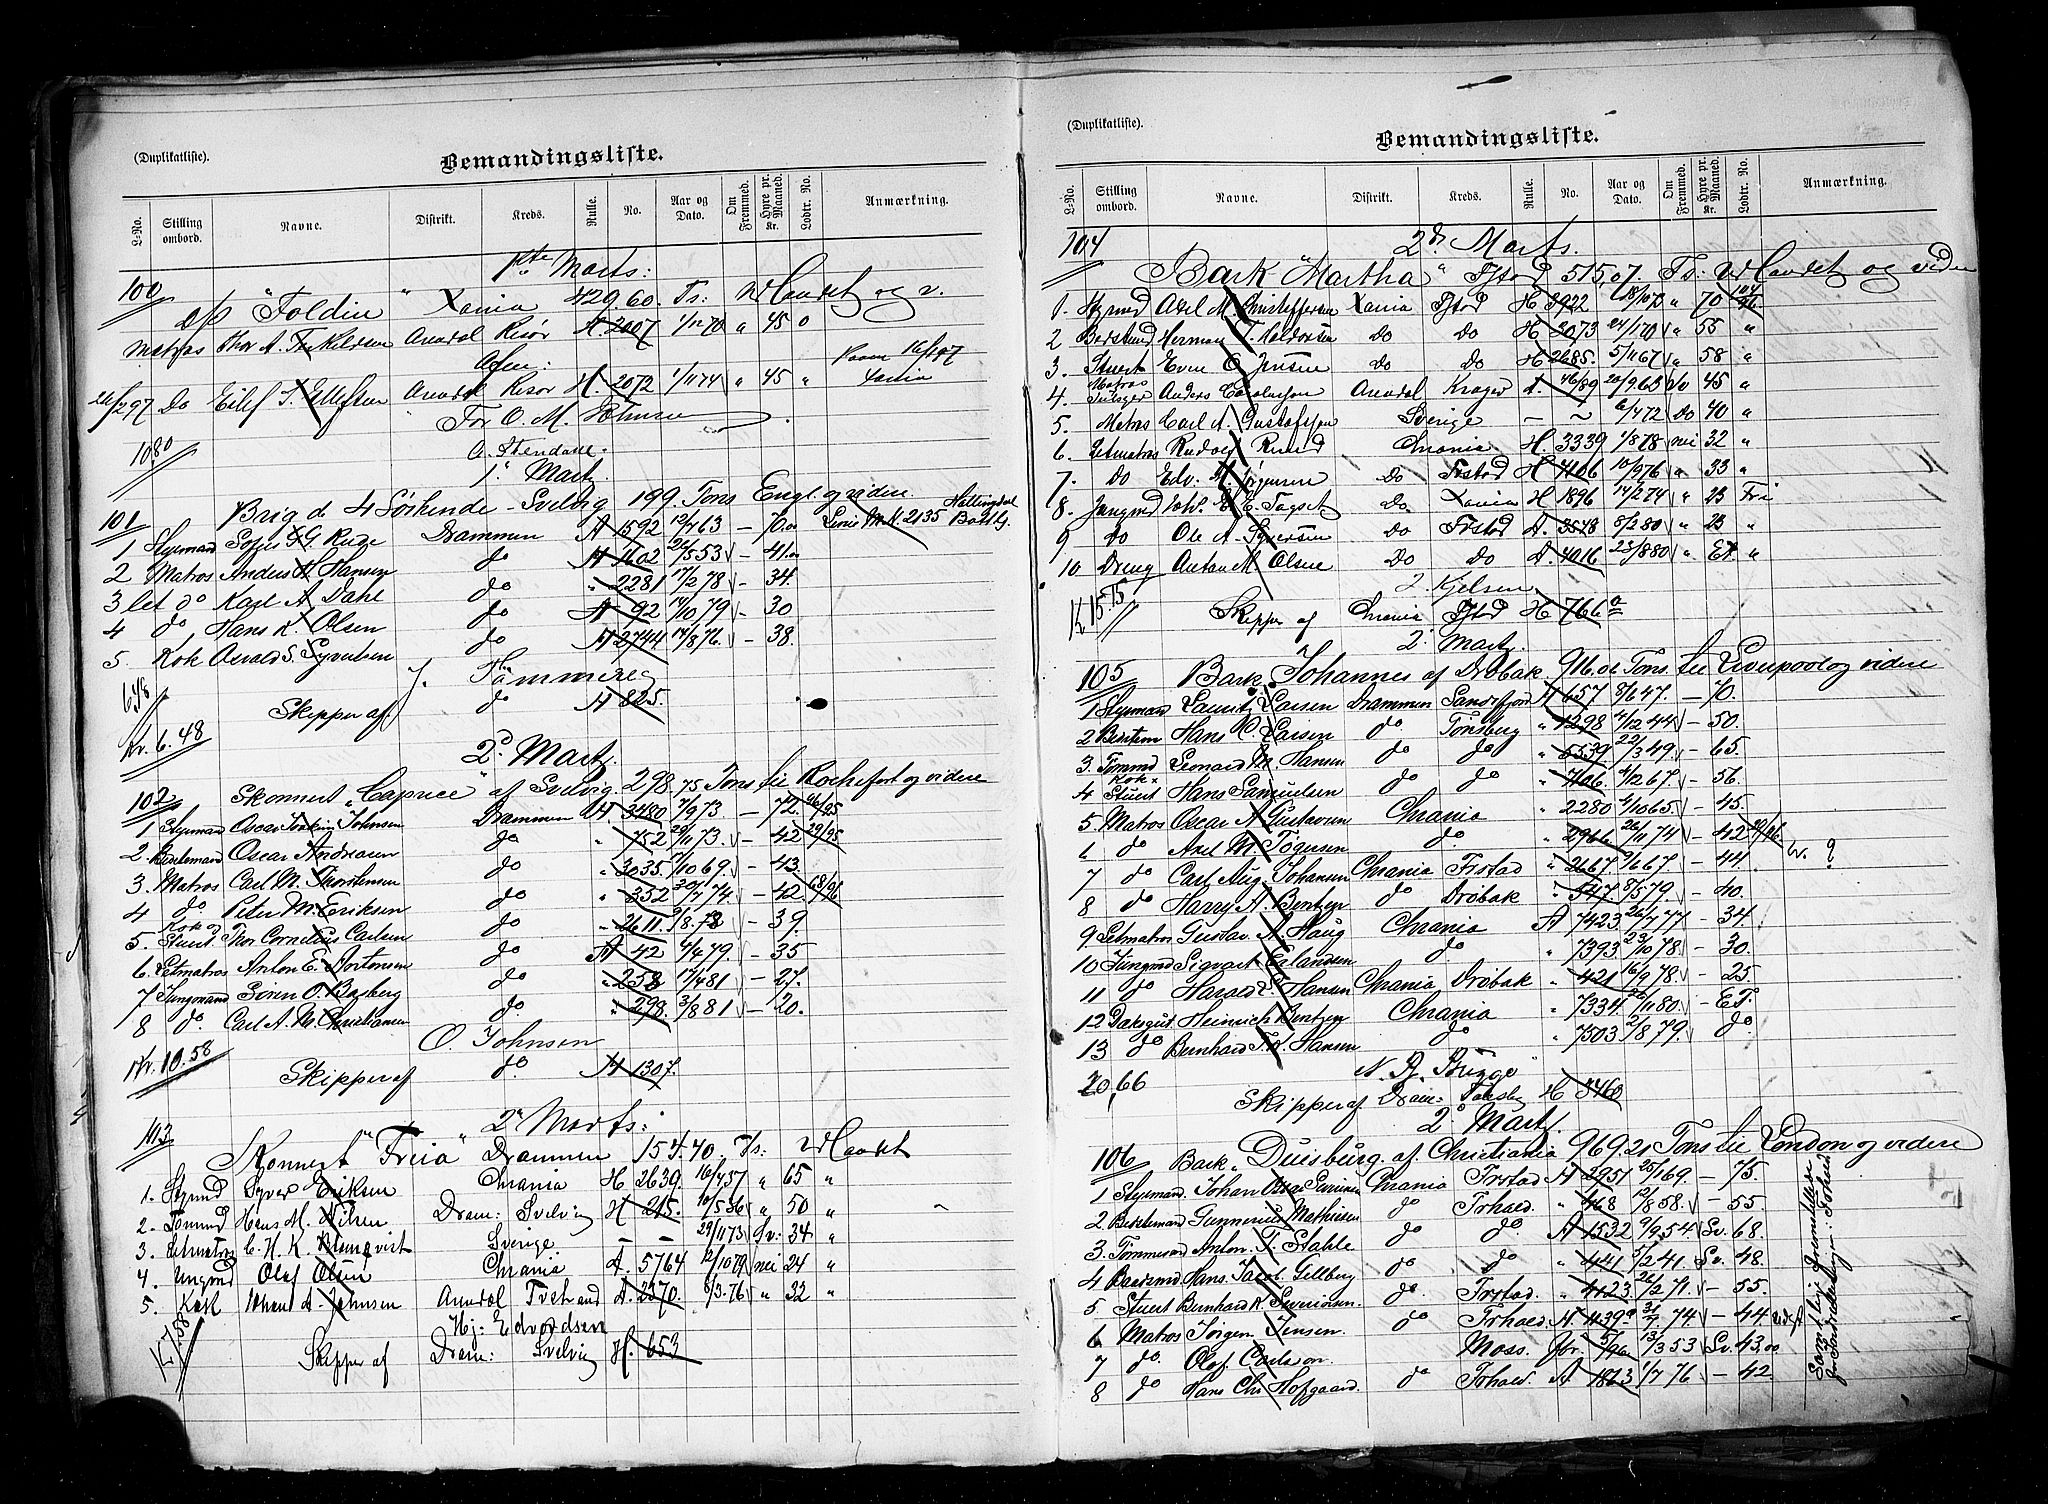 (Duplikatliste).
Bemandingsliste.
L-No. Stilling ombord. Navne. Distrikt. Kreds. Rulle. No. Aar og Dato. Om Fremmed. Hyre pr. Maaned. Kr. Lodtr. No. Anmærkning.
1ste Marts:
100
"Foldin" Xania 429,60. Ts: Udlandet og v.
Matros Thor A. Terkildsen Arendal Risør A. 2007 1/12 70 " 45 0
26/2 97 Do Eilef S. Ellefsen Arendal Risør H. 2072 1/11 74 " 45 " Xania
For O. M. Johnsen
A. Stendahl.
1080
1. Marts
101 Brig de 4 Søskende - Svelvig 199. Tons Engl. og videre.
1 Styrmand Sofus G. Rude Drammen A 1592 12/4 63 – 70.00
2 Matros Anders H. Hansen do H 1602 21/5 53 – 41.00
3 let do Karl A. Dahl do " 2281 17/2 78 – 34.
4 do Hans K. Olsen do A 92 14/10 79 – 30
5. Kok Osvald S. Syvertsen do H 2744 14/8 76 – 38.
6.48
Skipper af do H 825.
Kr. 6.48
2d Marts
102 Skonnert "Caprice" af Svelvig 298,75 Tons til Rochefort og videre
1 Styrmand Oscar Joakim Johnsen Drammen H 3480 7/9 73 – 72.
2. Bestemand Oscar Andreasen do " 752 20/11 73. – 42 29/95
3. Matros Carl M. Thorstensen do " 3035 17/10 69 – 43.
4 do Peter M. Eriksen do " 352 30/7 74. – 42. 68/96
5. Kok og Stuert Thor Cornelius Carlsen do " 2611. 9/8.72 – 39
6. Letmatros Anton E. Mortensen do A 42 4/4 79 – 35
7 Jungmand Søren O. Basberg do " 258 17/4 81 – 27.
8 do. Carl A. M. Christiansen do " 298. 3/8 81 – 20.
O. Johnsen
Kr. 10.58
Skipper af do. H 1307.
2n Marts:
103
Skonnert "Freia" Drammen 154,40. Ts: Udlandet
1. Stymd Syver Eriksen Chrania H 2639. 16/4 57 " 65 "
2. Tømmd Hans M. Nilsen Dram: Svelvig H 215. 10/5 36 " 50 "
3. Letmatros C. H. K. Blomqvist Sverige – – 29/11 73 Sv: 34 "
4. Ungmd Olaf Olsen Chrania A. 5764 12/10 79 nei 24 "
5. Kok Johan A. Johnsen Arendal Tvestrand A. 2370 6/3.76 " 32 "
Hj: Edvardsen
K 7.58
Skipper af Dram: Svelvig H. 653
(Duplikatliste).
Bemandingsliste.
L-No. Stilling ombord. Navne. Distrikt. Kreds. Rulle. No. Aar og Dato. Om Fremmed. Hyre pr. Maaned. Kr. Lodtr. No. Anmærkning.
104 2d Marts.
Bark "Martha" Fstad 515,07. Ts: Udlandet og videre
1. Stymd Axel M. Christoffersen Xania Fstad H 3922 " 70
2 Bestmd Herman T. Halvorsen Do Do H 3073 24/1 70 " 55 "
3. Stuert Even O. Jensen do Do H 2685. 5/11 67 " 58 "
4. Matros Anders Arendal Kragerø A. 46/89 20/9 63 do 45 "
5. Matros Carl A. Gustafsson Sverige – – 6/4 72 do 40 "
6. Letmatros Rudolf Ruud Chrania H. 3339 1/8 78 nei 32 "
7. Do Edv. M. Jørgensen Do Frstad H 4106 10/9 76 " 33 "
8. Jungmd do. Xania H 1896 14/2 74 " 23 Fri
9 do Ole A. Syversen do Frstad A. 3548 8/2 80 " 23 "
10 Dreng Anton M. Olsen Do Do A. 4016 23/8 80 " Et "
J. Kjelsen
K 15.75
Skipper af Chrania Fstad H 766 a
2. Marts
105 Bark Johannes af Drøbak 916.01 Tons til Liverpool og videre
1 Styrmand Lauritz Larsen Drammen Sandefjord H 657 8/6 47. – 70.
2 Bestem Hans C. Larsen do. Tønsberg " 1298 4/12 44 – 50.
3. Tømmd Leonard M. Hansen do do " 5539 22/3 49 – 65.
4 Kok & Stuert Hans Samuelsen do do " 7106 4/12 67. – 56.
5 Matros Oscar A. Gustavsen Chrania " 2280 9/10 65. – 45.
6 do Axel M. Tøgersen do. " 2966 26/11 74 – 42
7 do Carl Aug. Johansen Chrania Frstad " 2667. 9/6 67. – 44.
8 do Harry A. Bentzen do Drøbak " 547 8/5 79. – 40.
9 Letmatros Gustav A. Haug Chrania A 7423 26/7 77 – 34.
10 Jungmd Sigvart Erlandsen do " 7393 23/10 78 – 30.
11 do Harald L. Hansen Chrania Drøbak " 421 16/9 78. – 25
12 Dæksgut Heinrich Bentzen Chrania " 7334 20/11 80. – ET.
13 do Bernhard T. A. Hansen do " 7503 2/8 79. do.
N. A. Bugge
20,66
Skipper af Dram: Tønsbg H 3460
2. Marts
106 Bark "Duisburg" af Christiania 969.21 Tons til London og videre
1 Styrmand. Johan Chrania Frstad A 2951 25/1 69. – 75.
2. Bestemand Gunnerius Mathisen do Frhald. " 468 12/8 58. – 55.
3. Tømmermand Anton. T. Stahle do do. A 1532 9/9 54 Sv. 68.
4 Baadsmd Hans Jacob Gellberg do. do " 441 5/2 41. Sv. 48.
5 Stuert Bernhard K. Sivertsen. do Frstad. " 4123 26/2 71. – 55.
6 Matros Jørgen Jensen. do Frhald. H 1139 31/7. 74. – 44
7 do. Olaf Carlson. Moss. 5/96 13/3 53 Sv. 43.00
8 do Hans Chr Hofgaard. do Frhald. A 1863 1/7 76 – 42